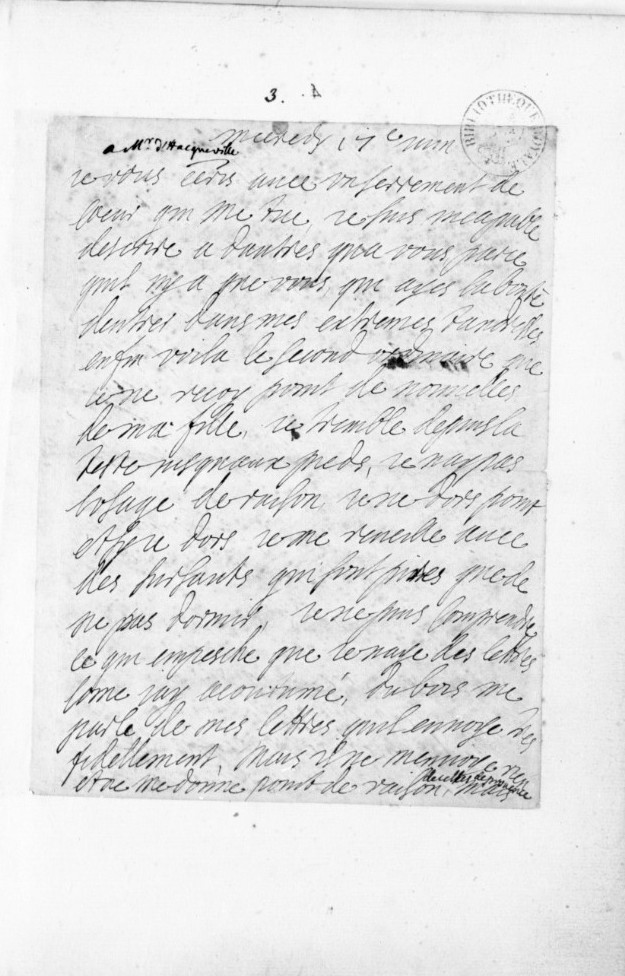 3.
BIBLIOTHEQUE ROYALE
a Mr. d'Hacqueville
mecredy 17e juin
je vous écris avec un serrement de
coeur qui me tue, je suis incapable
descrire a dautres qua vous parce
quil ny a que vous qui ayes la bonté
dentrer dans mes extremes tandresses
enfin voila le second ordinaire que
je ne reçoy point de nouvelles
de ma fille, je tremble depuis la
teste jusquaux pieds, je nay pas
lusage de raison, je ne dors point
et si je dors je me reveille avec
des sursauts qui sont pires que de
ne pas dormir, je ne puis comprendre
ce qui empesche que je naye des lettres
come jay acoutumé, dubois me
parle de mes lettres quil envoye tres
fidellement, mais il ne menvoye rien
et ne me donne point de raison mais